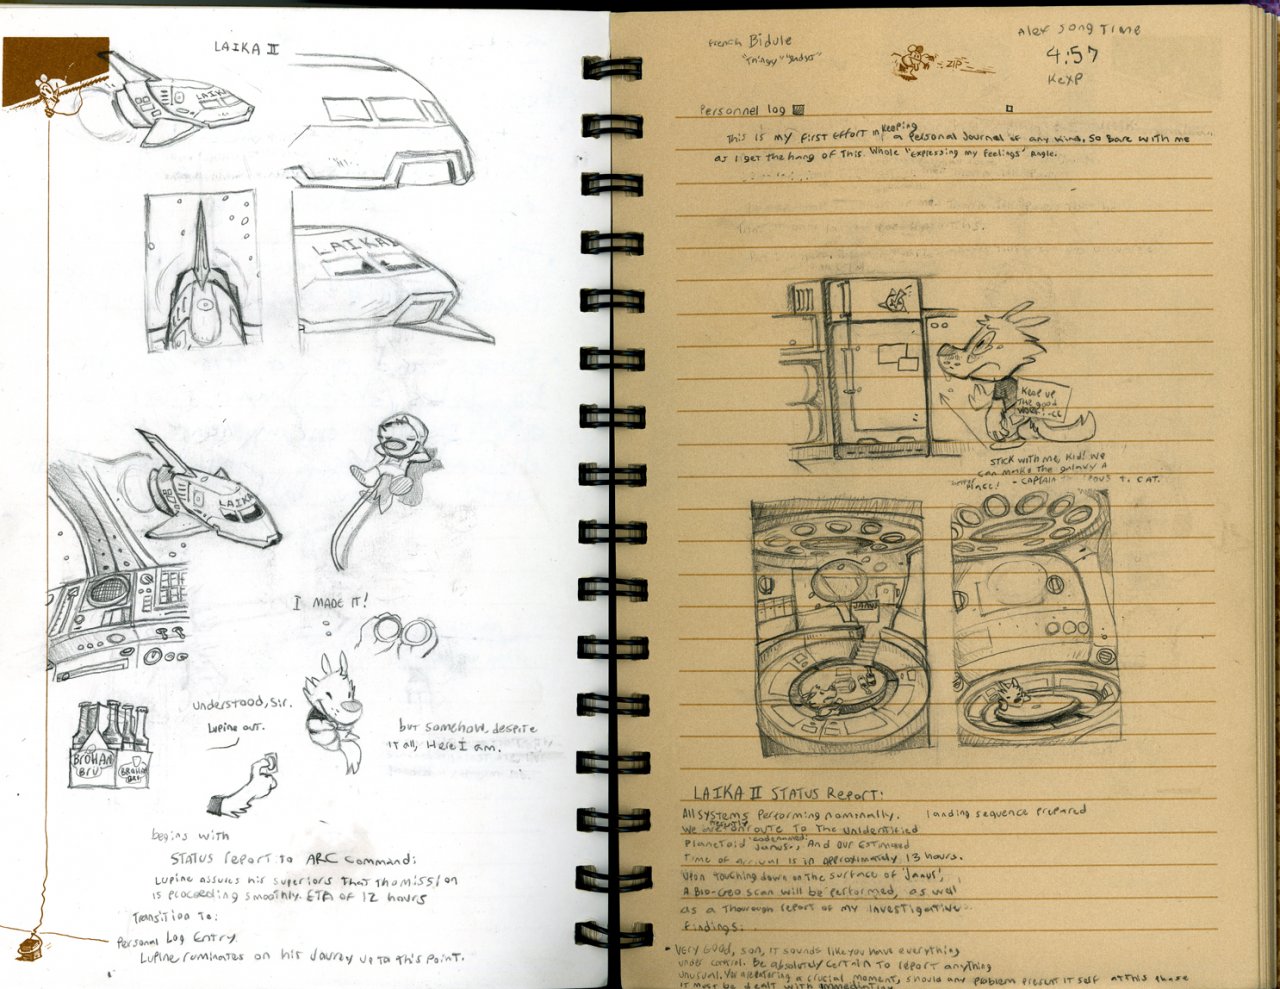 LAIKA II
LAIKA
LAIKA
LAIKA
I MADE IT!
understood, Sir.
Lupine out.
but somehow, despite
it all, Here I am.
BROHAN
BRU
BROHAN
BRU
begins with
STATUS report to ARC Command:
Lupine assures his superiors that the mission
is proceeding smoothly. ETA of 12 hours
Transition to:
Personal Log Entry.
Lupine ruminates on his Journey up to this point.
French Bidule
"Thingy" "gadget"
ZIP
Alex Song Time
4:57
KEXP
Personnel log
This is my first effort in keeping a personal Journal of any kind, So bare with me
as I get the hang of this. Whole "Expressing my feelings" Angle.
Keep up
The good
WORK! -CC
STICK with me, Kid! We
can make the galaxy a
place! - CAPTAIN T. CAT.
JANUS
LAIKA II STATUS Report:
All Systems Performing nominally. landing sequence prepared
We are presently enroute to The Unidentified
planetoid codenamed 'Janus', And our Estimated
Time of arrival is in approximately 13 hours.
Upon touching down on the surface of 'Janus',
A Bio-Geo scan will be performed, as well
as a thorough report of my investigative
findings.
• Very Good, son, it sounds like you have everything
under control. Be absolutely certain to report anything
unusual. You are entering a crucial moment, should any problem present it self at this phase
it must be dealt with immediately